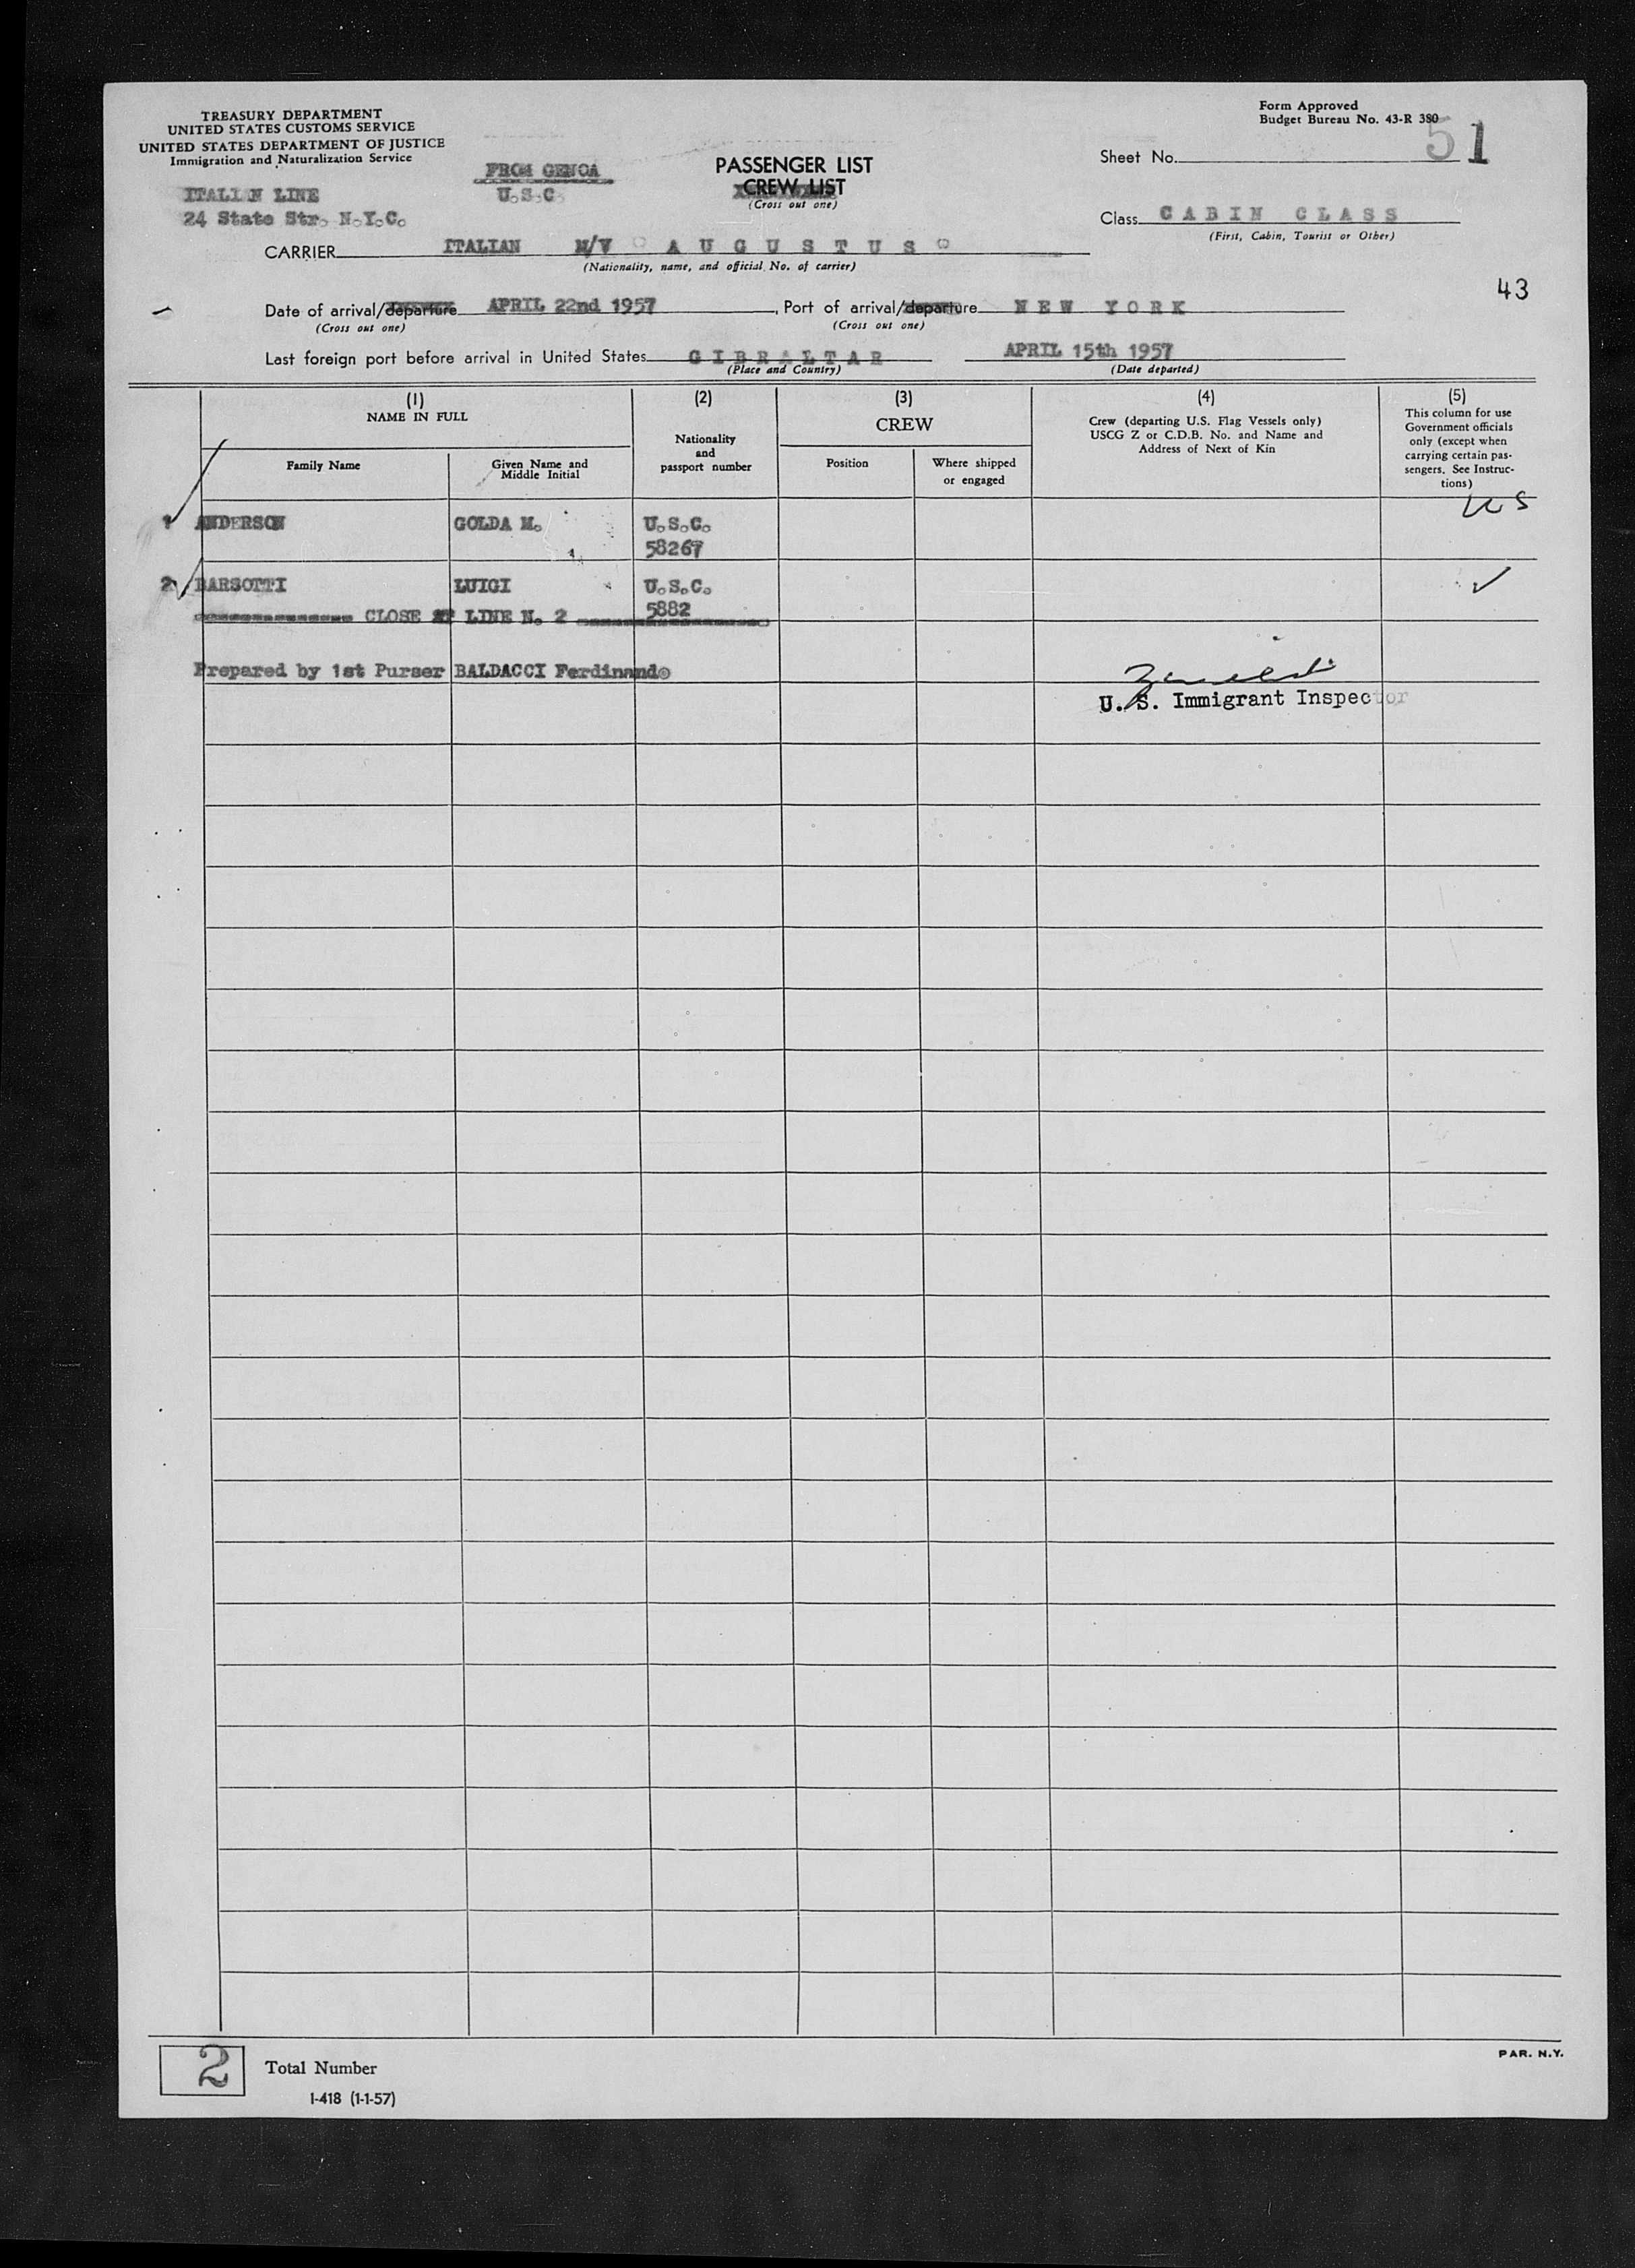 TREASURY DEPARTMENT
UNITED STATES CUSTOMS SERVICE
UNITED STATES DEPARTMENT OF JUSTICE
Immigration and Naturalization Service
ITALIAN LINE
24 State Str. N.Y.C.
FROM GENOA
U.S.C.
PASSENGER LIST
CREW LIST
(Cross out one)
Form Approved
Budget Bureau No. 43-R 380
Sheet No. 51
Class CABIN CLASS
(First, Cabin, Tourist or Other)
CARRIER ITALIAN M/V "AUGUSTUS"
(Nationality, name, and official No. of carrier)
43
Date of arrival/departure APRIL 22nd 1957, Port of arrival/departure NEW YORK
(Cross out one) (Cross out one)
Last foreign port before arrival in United States GIBRALTAR APRIL 15th 1957
(Place and Country) (Date departed)
(1)
NAME IN FULL
Family Name
Given Name and
Middle Initial
(2)
Nationality
and
passport number
(3)
CREW
Position
Where shipped
or engaged
(4)
Crew (departing U.S. Flag Vessels only)
USCG Z or C.D.B. No. and Name and
Address of Next of Kin
(5)
This column for use
Government officials
only (except when
carrying certain pas-
sengers. See Instruc-
tions)
US
1 ANDERSON GOLDA M. U.S.C.
58267
2 BARSOTTI LUIGI U.S.C. ✓
5882
CLOSE AT LINE N. 2
Prepared by 1st Purser BALDACCI Ferdinando
U. S. Immigrant Inspector
2 Total Number
I-418 (1-1-57)
PAR. N.Y.